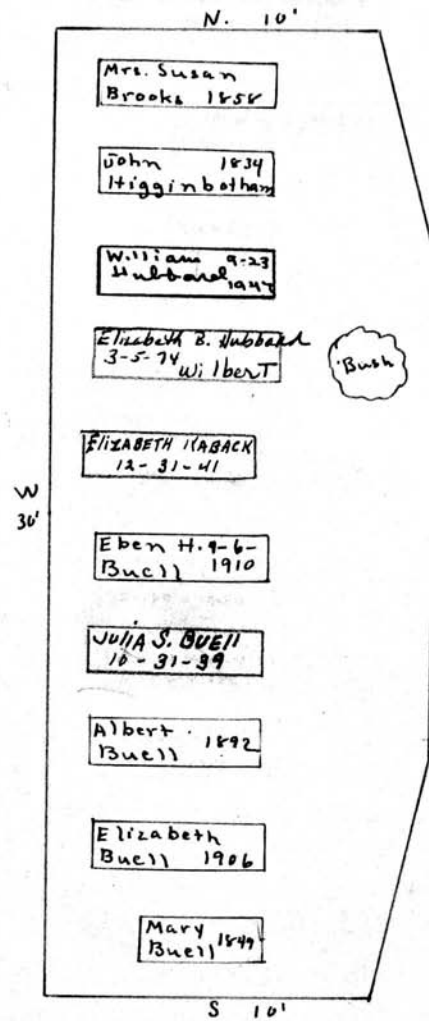 N. 10'
Mrs. Susan
Brooks 1858
John 1834
Higginbotham
William 9-23
Hubbard 1947
Elizabeth B. Hubbard
3-5-74 Wilbert
Bush
ELIZABETH KABACK
12-31-41
W
30'
Eben H. 9-6-
Buell 1910
JULIA S. BUEll
10-31-39
Albert
Buell 1892
Elizabeth
Buell 1906
Mary
Buell 1849
S 10'